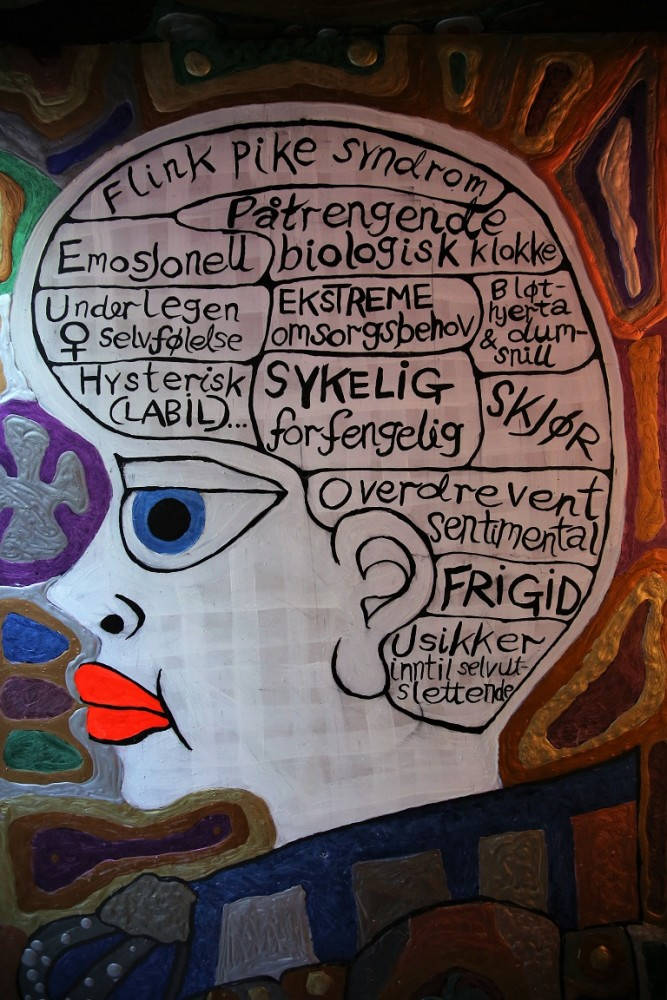 Flink pike syndrom
Påtrengende
biologisk klokke
Emosjonell
Underlegen
♀ selvfølelse
EKSTREME
omsorgsbehov
Bløt-
hjerta
& dum-
snill
Hysterisk
(LABIL)...
SYKELIG
forfengelig
SKJØR
Overdrevent
sentimental
FRIGID
Usikker
inntil selvut-
slettende